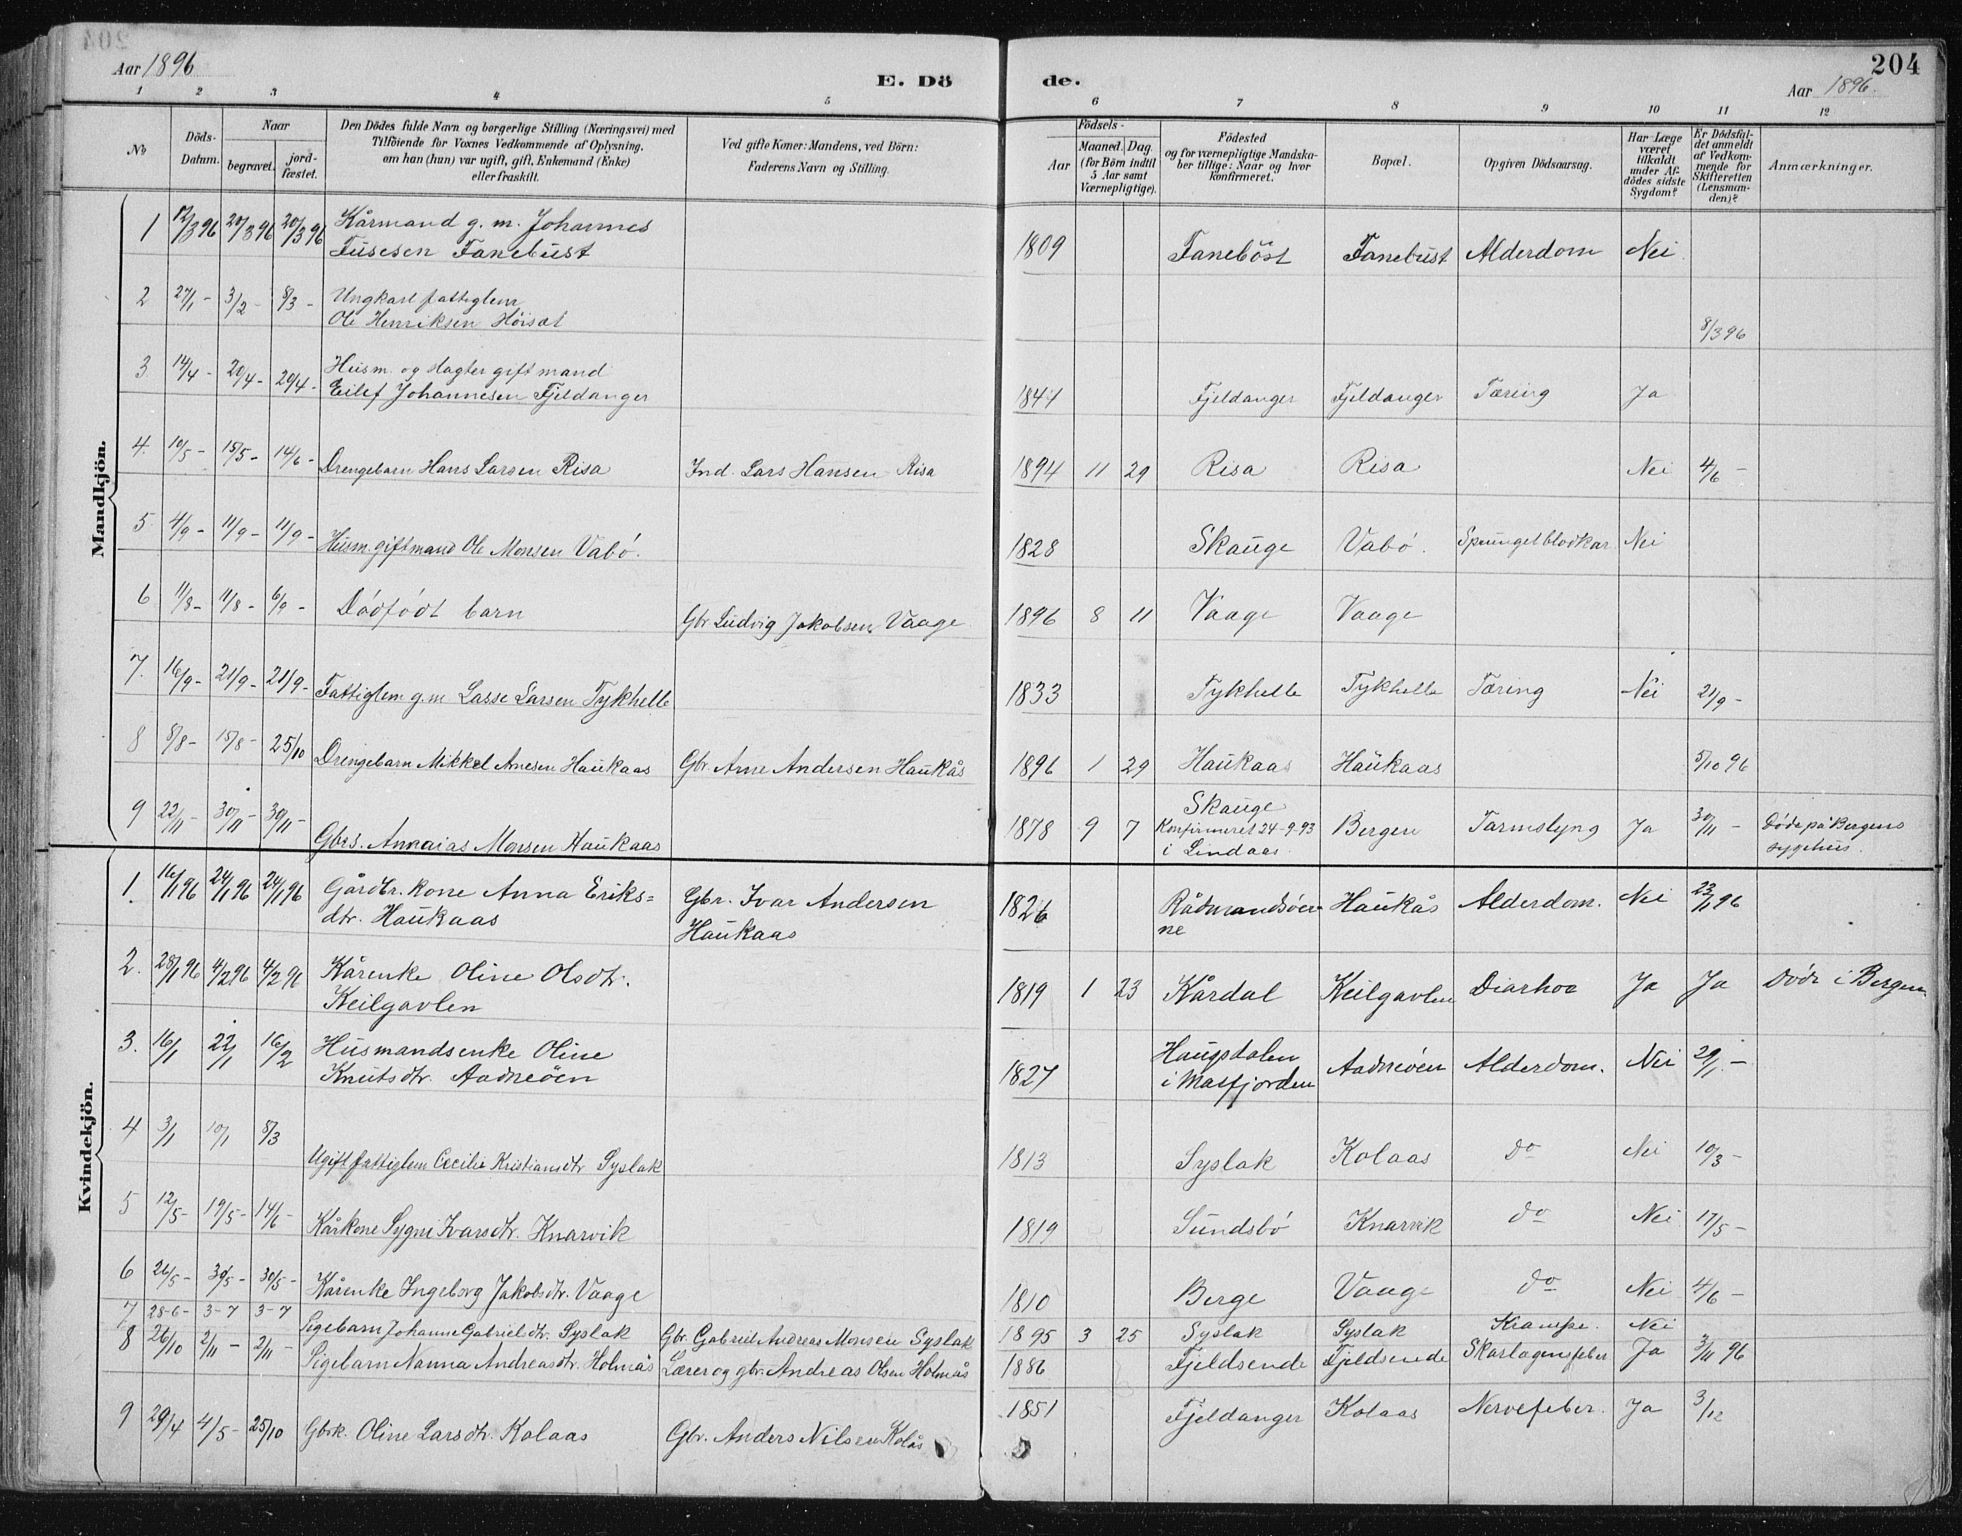 Aar 1896
E. Dö
de.
204
Aar 1896.
1 2 3 4 5 6 7 8 9 10 11 12
No
Döds-Datum.
Naar
begravet.
jord-fæstet.
Den Dödes fulde Navn og borgerlige Stilling (Næringsvei) med
Tilföiende for Voxnes Vedkommende af Oplysning,
om han (hun) var ugift, gift, Enkemand (Enke)
eller fraskilt.
Ved gifte Koner: Mandens, ved Börn:
Faderens Navn og Stilling.
Födsels-
Aar
Maaned. Dag.
(for Börn indtil
5 Aar samt
Værnepligtige).
Födested
og for værnepligtige Mandska-
ber tillige: Naar og hvor
konfirmeret.
Bopæl.
Opgiven Dödsaarsag.
Har Læge
været
tilkaldt
under Af-
dödes sidste
Sygdom?
Er Dödsfal-
det anmeldt
af Vedkom-
mende for
Skifteretten
(Lensman-
den)?
Anmærkninger.
Mandkjön.
1 12/3 96 20/3 96 20/3 96 Kårmand g. m. Johannes
Fusesen Fanebust 1809 Faneböst Fanebust Alderdom Nei
2 27/1 - 3/2 - 8/3 - Ungkarl fattiglem
Ole Henriksen Höisæt 8/3 96
3 14/4 - 20/4 - 20/4 - Husm. og slagter gift mand
Eilef Johannesen Fjeldanger 1847 Fjeldanger Fjeldanger Tæring Ja
4. 10/5 - 15/5 - 14/6 - Drengebarn Hans Larsen Risa Ind. Lars Hansen Risa 1894 11 29 Risa Risa Nei 4/6 -
5 4/9 - 11/9 - 11/9 - Husm. giftmand Ole Monsen Vabö. 1828 Skauge Vabö. Sprunget blodkar Nei
6 11/8 - 11/8 - 6/9 - Dödfödt barn Gbr Ludvig Jakobsen Vaage 1896 8 11 Vaage Vaage
7. 16/9 - 21/9 - 21/9 - Fattiglem g.m Lasse Larsen Tykhelle 1833 Tykhelle Tykhelle Tæring Nei 21/9 -
8 8/8 - 15/8 - 25/10 Drengebarn Mikkel Arnesen Haukaas Gbr. Arne Andersen Haukås 1896 1 29 Haukaas Haukaas 5/10 96
9 22/11 - 30/11 - 30/11 - Gbrs. Annaias Monsen Haukaas 1878 9 7 Skauge
Konfirmeret 24-9-93
i Lindaas. Bergen Tarmslyng Ja 30/11 - Döde på Bergens
sygehus.
Kvindekjön.
1. 16/1 96 24/1 96 24/1 96 Gårdbr. kone Anna Eriks=
dtr. Haukaas Gbr. Ivar Andersen
Haukaas 1826 Rådmandsöer
ne Haukås Alderdom. Nei 23/1 96
2. 28/1 96 4/2 96 4/2 96 Kårenke Oline Olsdtr.
Keilgavlen 1819 1 23 Kårdal Keilgavlen Diarhoe Ja Ja Döde i Bergen.
3. 16/1 22/1 16/2 Husmandsenke Oline
Knutsdtr. Aadneöen 1827 Haugsdalen
i Masfjorden Aadneöen Alderdom. Nei 29/1 -
4 3/1 10/1 8/3 Ugift fattiglem Cecilie Kristiansdtr Syslak 1813 Syslak Kolaas do Nei 10/3 -
5 12/5 - 19/5 - 14/6 - Kårkone Sygni Ivarsdtr. Knarvik 1819 Sundsbö Knarvik do Nei 17/5 -
6 26/5 - 30/5 - 30/5 - Kårenke Ingeborg Jakobsdtr. Vaage 1810 Berge Vaage do Nei 4/6 -
7 28-6- 3-7 3-7 Pigebarn Johanne Gabrieldtr. Syslak Gbr. Gabriel Andreas Monsen Syslak 1895 3 25 Syslak Syslak Krampe. Nei
8 26/10 2/11 - 2/11 - Pigebarn Nanna Andreasdtr. Holmås Lærer og gbr. Andreas Olsen Holmås 1886 Fjeldsende Fjeldsende Skarlagensfeber Ja 3/11 96
9 29/4 4/5 - 25/10 Gbrk. Oline Larsdtr. Kolaas Gbr. Anders Nilsen Kolås 1851 Fjeldanger Kolaas Nervefeber. Ja 3/12